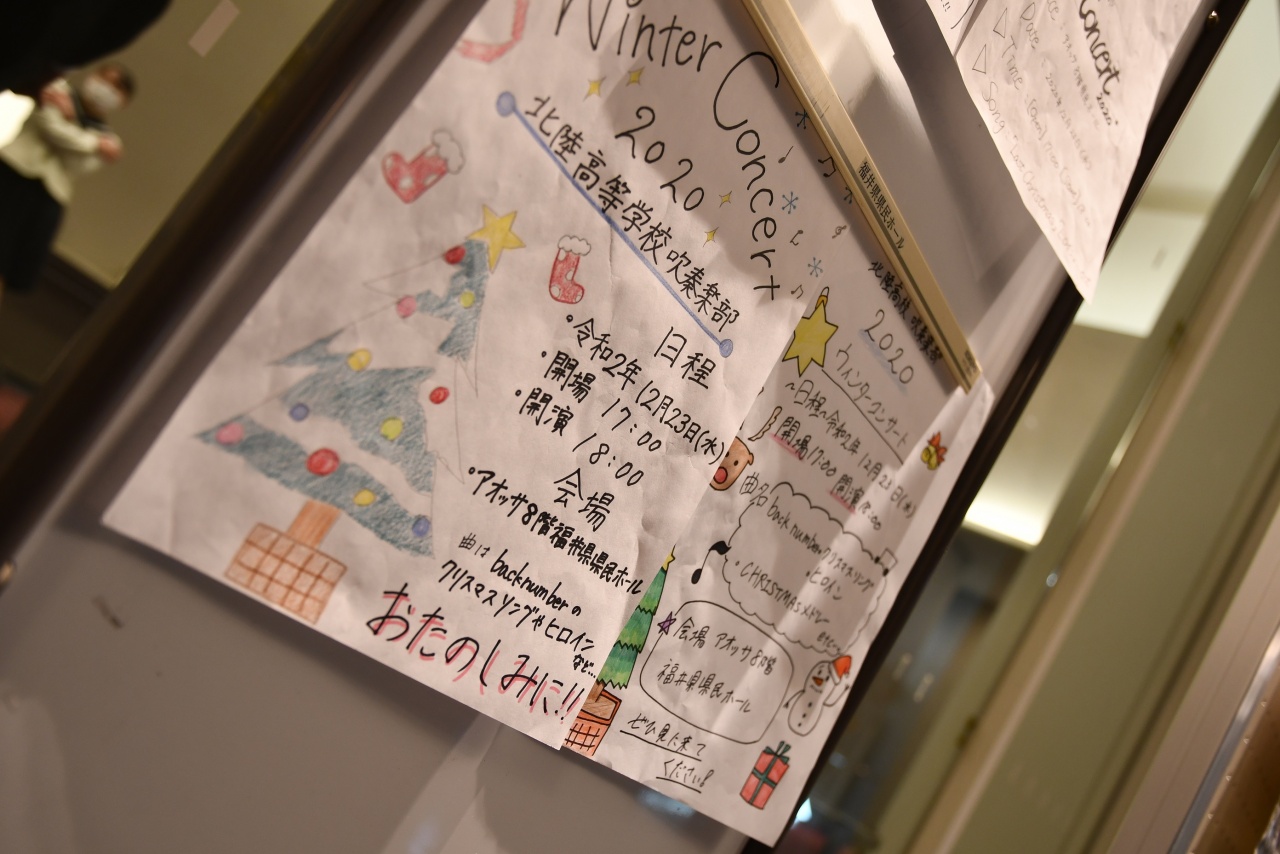 Winter Concert
2020
北陸高等学校吹奏楽部
日程
・令和2年12月23日(水)
・開場 17:00
・開演 18:00
会場
・アオッサ8階福井県県民ホール
曲は backnumberの
クリスマスソングやヒロイン
など...
おたのしみに!!
福井県県民ホール
北陸高校 吹奏楽部
2020
ウィンターコンサート
~日程~令和2年 12月23日(水)
開場17:00 開演18:00
曲名
back number クリスマスソング
・ヒロイン
・CHRISTMASメドレー
etc~
会場 アオッサ8階
福井県県民ホール
ぜひ見に来て
ください!
Concert
2020
Date
Time
Song "Last Christmas"